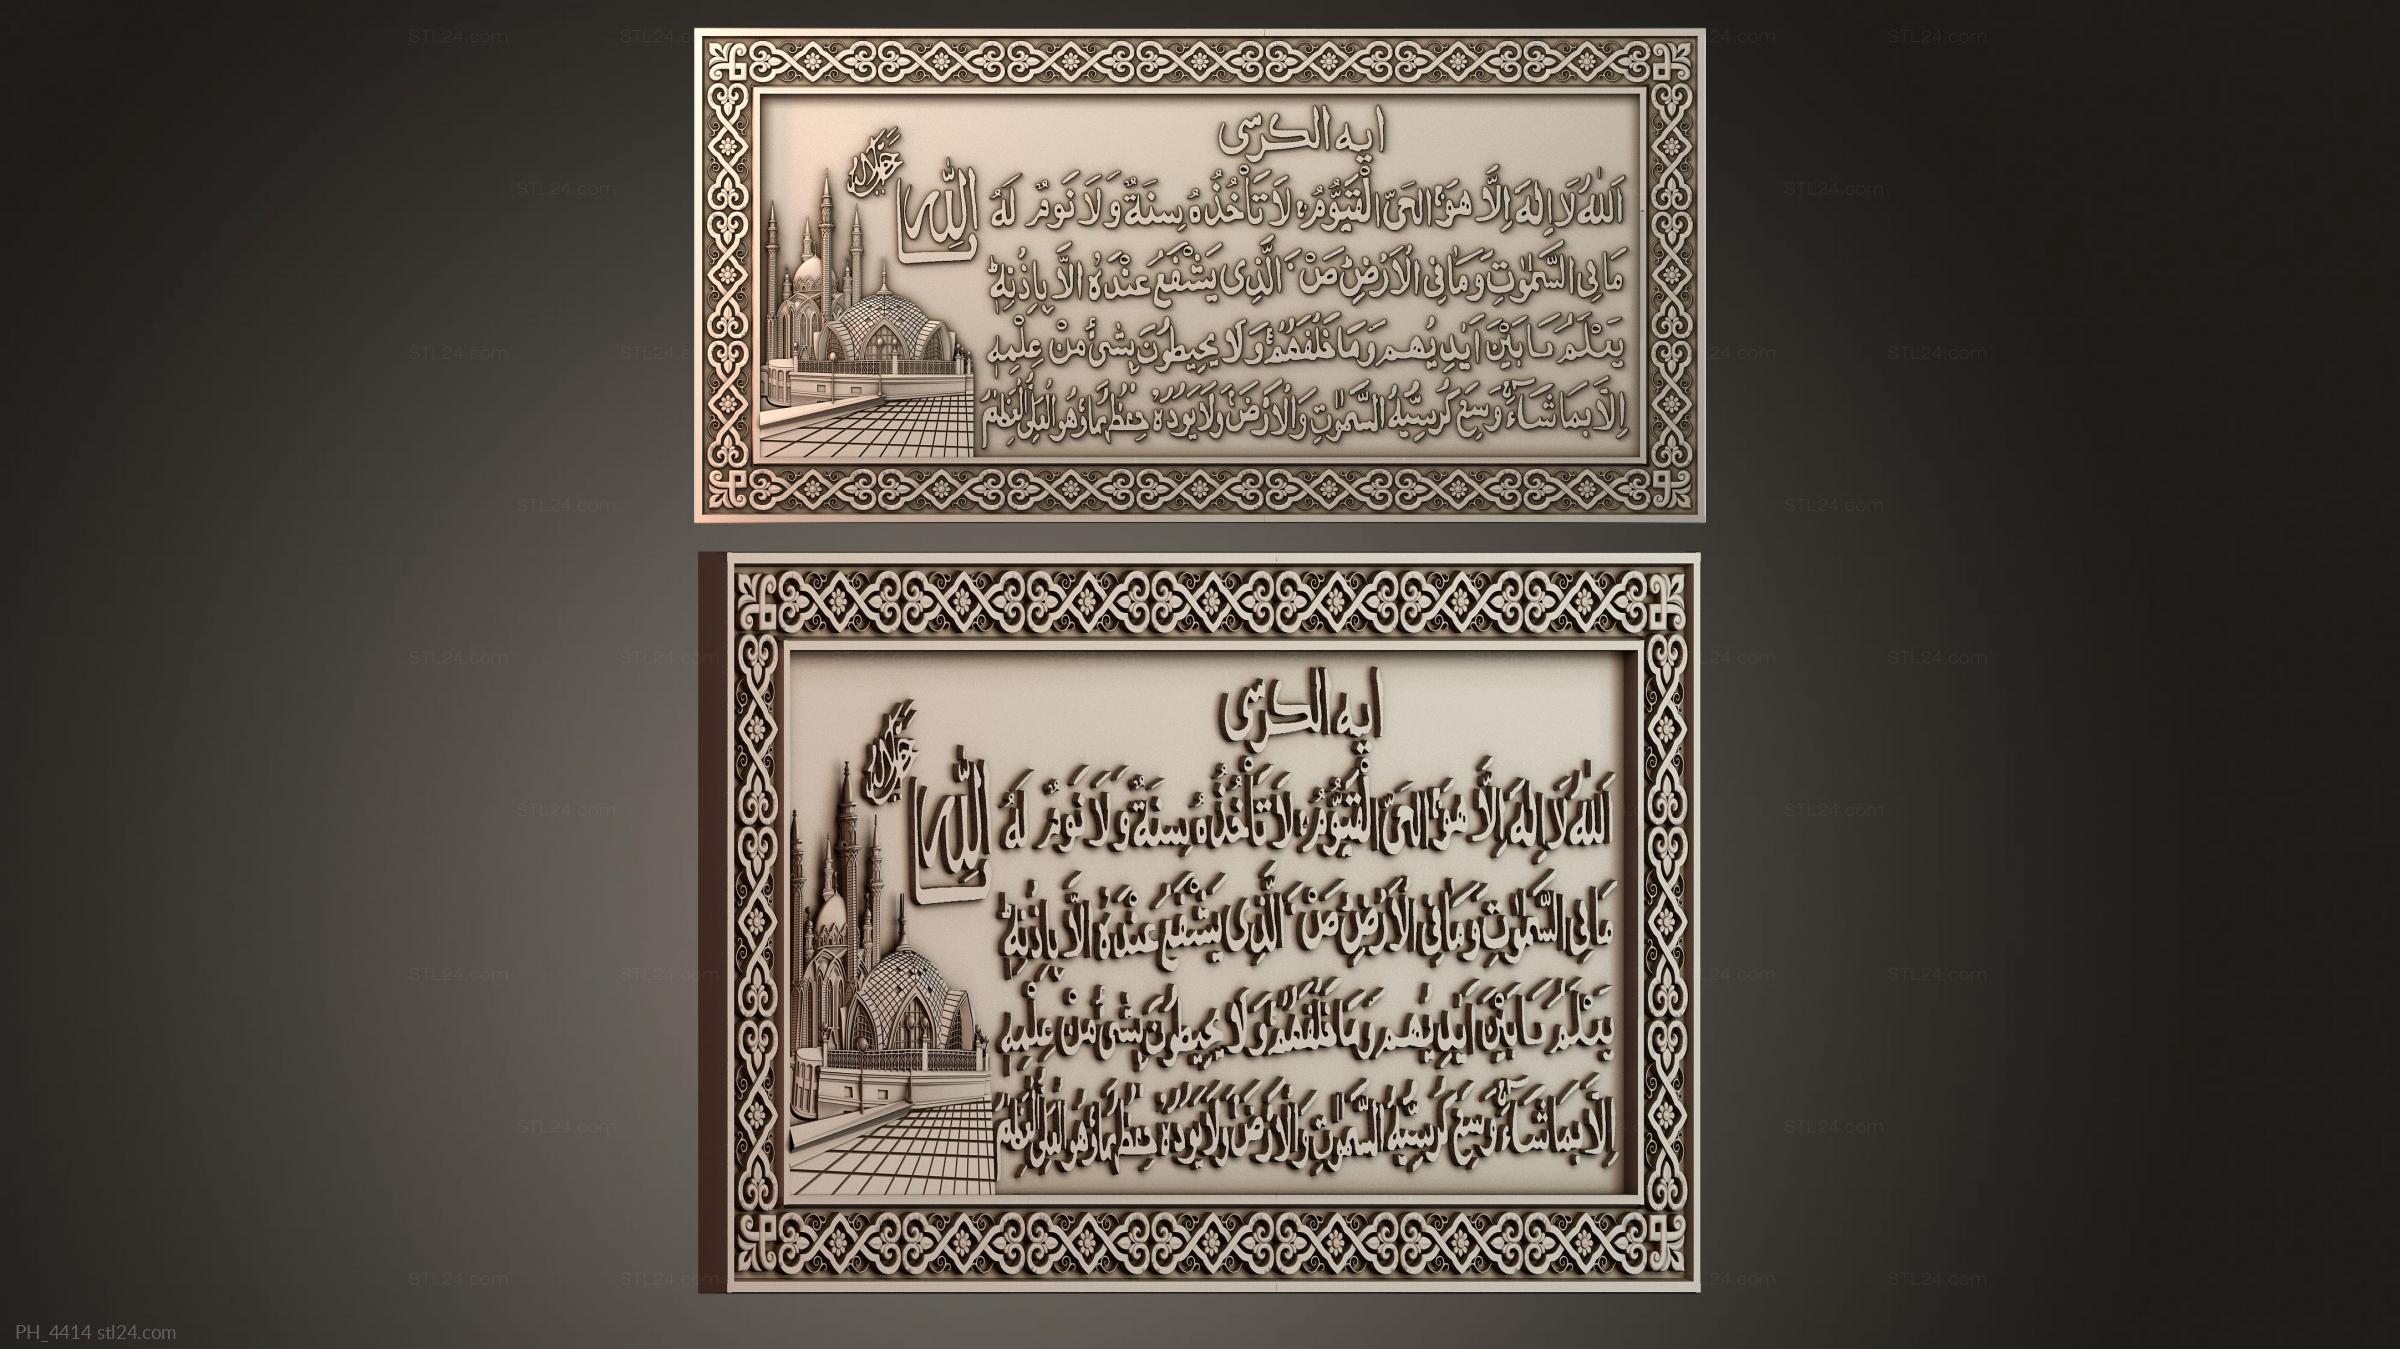 ايه الكرسى
جل جلاله
الله
اَللّٰهُ لَا اِلٰهَ اِلَّا هُوَ الْحَىُّ الْقَيُّوْمُ لَا تَاْخُذُهٗ سِنَةٌ وَّلَا نَوْمٌ لَهٗ
مَا فِى السَّمٰوٰتِ وَمَا فِى الْاَرْضِ مَنْ الَّذِى يَشْفَعُ عِنْدَهٗ اِلَّا بِاِذْنِهٖ
يَعْلَمُ مَا بَيْنَ اَيْدِيْهِمْ وَمَا خَلْفَهُمْ وَلَا يُحِيْطُوْنَ بِشَىْءٍ مِّنْ عِلْمِهٖ
اِلَّا بِمَا شَآءَ وَسِعَ كُرْسِيُّهُ السَّمٰوٰتِ وَالْاَرْضَ وَلَا يَـُٔوْدُهٗ حِفْظُهُمَا وَهُوَ الْعَلِىُّ الْعَظِيْمُ
ايه الكرسى
جل جلاله
الله
اَللّٰهُ لَا اِلٰهَ اِلَّا هُوَ الْحَىُّ الْقَيُّوْمُ لَا تَاْخُذُهٗ سِنَةٌ وَّلَا نَوْمٌ لَهٗ
مَا فِى السَّمٰوٰتِ وَمَا فِى الْاَرْضِ مَنْ الَّذِى يَشْفَعُ عِنْدَهٗ اِلَّا بِاِذْنِهٖ
يَعْلَمُ مَا بَيْنَ اَيْدِيْهِمْ وَمَا خَلْفَهُمْ وَلَا يُحِيْطُوْنَ بِشَىْءٍ مِّنْ عِلْمِهٖ
اِلَّا بِمَا شَآءَ وَسِعَ كُرْسِيُّهُ السَّمٰوٰتِ وَالْاَرْضَ وَلَا يَـُٔوْدُهٗ حِفْظُهُمَا وَهُوَ الْعَلِىُّ الْعَظِيْمُ
PH_4414 stl24.com